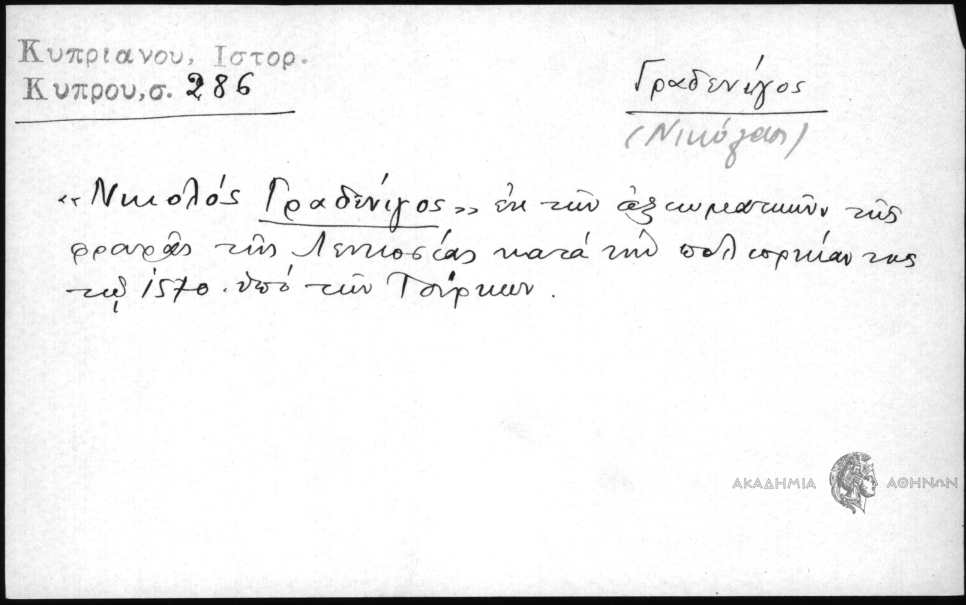 Κυπριανου, Ιστορ.
Κυπρου, σ. 286
Γραδενίγος
(Νικόλαος)
«Νικολός Γραδενίγος» ἐκ τῶν ἀξιωματικῶν τῆς
φρουρᾶς τῆς Λευκοσίας κατά τήν πολιορκίαν της
τῷ 1570 ὑπό τῶν Τούρκων.
ΑΚΑΔΗΜΙΑ ΑΘΗΝΩΝ